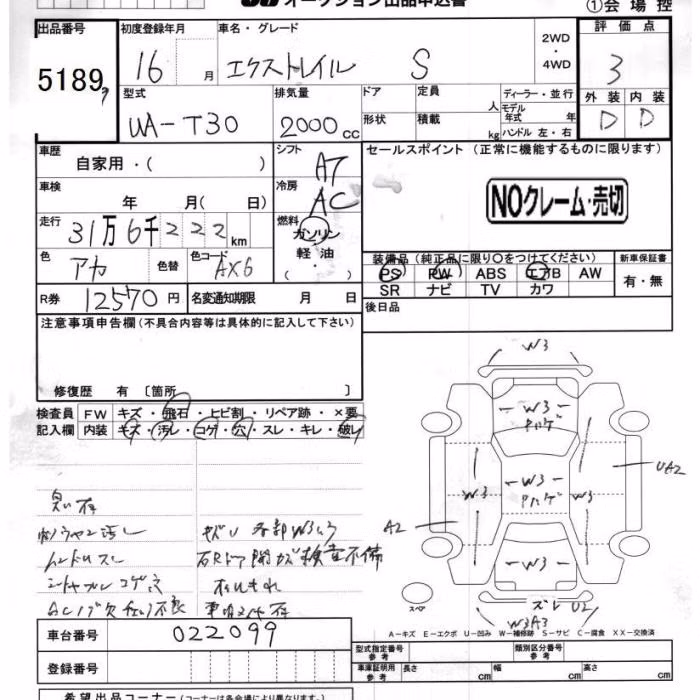 オークション出品申込書
①会場控
出品番号 5189
初度登録年月 16 月
車名・グレード エクストレイル S
2WD・4WD
評価点 3
外装 内装
D D
型式 UA-T30
排気量 2000 cc
ドア 形状
定員 人
積載 kg
ディーラー・並行
モデル年式 年
ハンドル 左・右
車歴 自家用・( )
シフト AT
車検 年 月( 日)
冷房 AC
走行 31万6千222 km
燃料 ガソリン・軽油・( )
色 アカ 色替 色コード AX6
R券 12570 円 名変通知期限 月 日
セールスポイント (正常に機能するものに限ります)
NOクレーム・売切
装備品 (純正品に限り○をつけてください)
PS PW ABS エアB AW
SR ナビ TV カワ
新車保証書
有・無
後日品
注意事項申告欄 (不具合内容等は具体的に記入して下さい)
修復歴 有 〔箇所 〕
検査員記入欄
FW キズ・飛石・ヒビ割・リペア跡・×要
内装 キズ・汚レ・コゲ・穴・スレ・キレ・破レ
臭い有
各部W3有
検査不備
W3
W3
W3
W3
W3
W3
A2
UA2
ズレ U2
W3A3
スペア
A-キズ E-エクボ U-凹み W-補修跡 S-サビ C-腐食 XX-交換済
車台番号 022099
登録番号
型式指定番号 参考
類別区分番号 参考
車庫証明用 参考 長さ cm 幅 cm 高さ cm
希望出品コーナー (コーナーは各会場により異なります。)